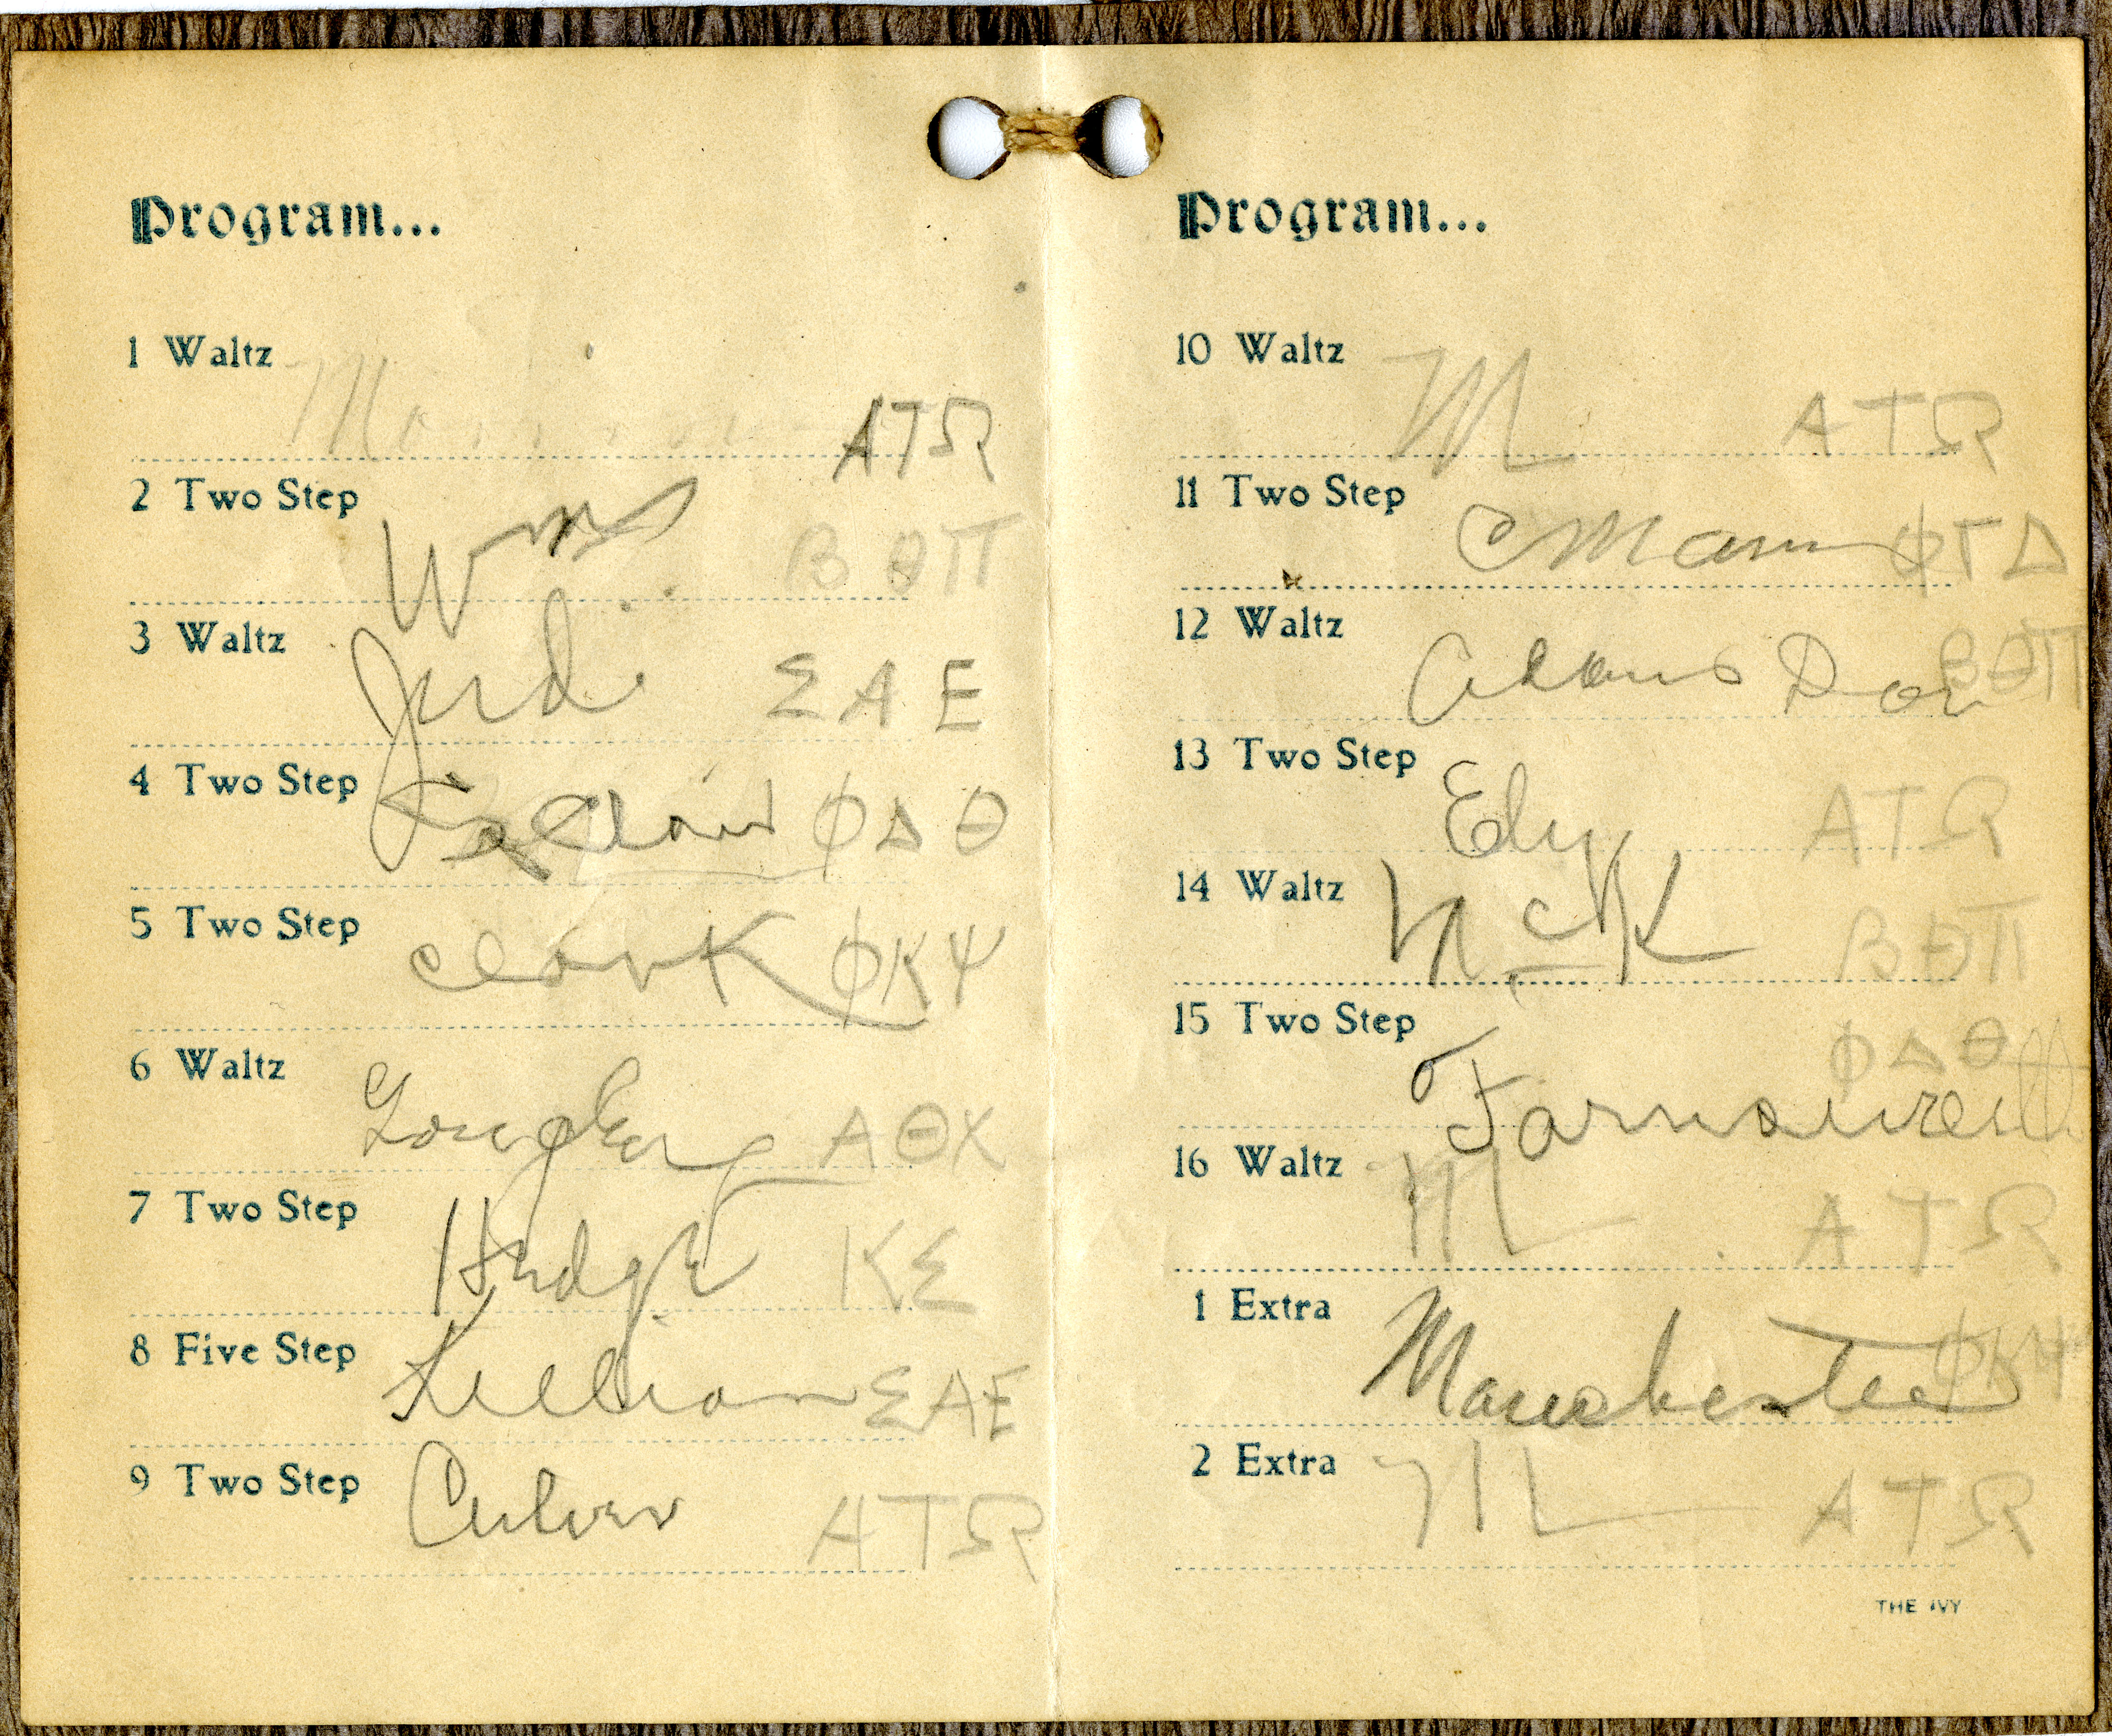 Program...
1 Waltz
ΑΤΩ
2 Two Step Wms ΒΘΠ
3 Waltz Jud. ΣΑΕ
4 Two Step ΦΔΘ
5 Two Step Clark ΦΚΨ
6 Waltz ΑΘΧ
7 Two Step ΚΣ
8 Five Step Killian ΣΑΕ
9 Two Step Culver ΑΤΩ
Program...
10 Waltz ΑΤΩ
11 Two Step C Mann ΦΓΔ
12 Waltz Adams ΒΘΠ
13 Two Step Ely ΑΤΩ
14 Waltz ΒΘΠ
15 Two Step ΦΔΘ
16 Waltz ΑΤΩ
1 Extra Manchester ΦΚΨ
2 Extra ΑΤΩ
THE IVY